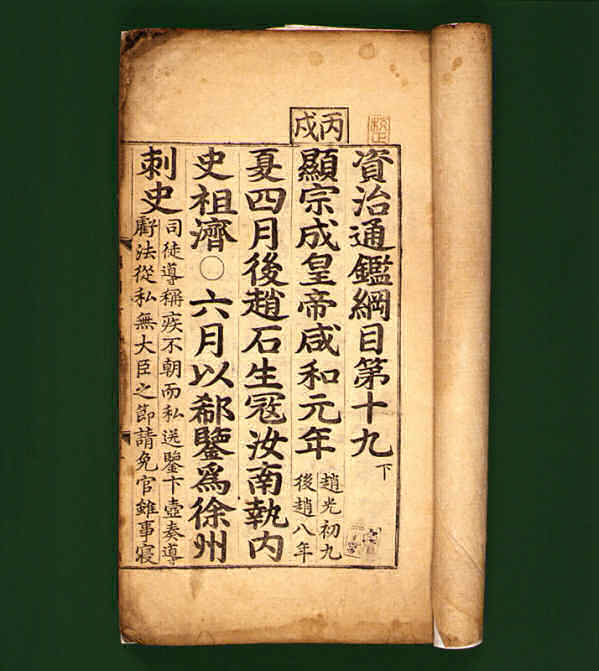 丙戌
資治通鑑綱目第十九下
顯宗成皇帝咸和元年
趙光初九
後趙八年
夏四月後趙石生寇汝南執內
史祖濟○六月以郗鑒爲徐州
刺史
司徒導稱疾不朝而私送鑒卞壼奏導
虧法從私無大臣之節請免官雖事寢